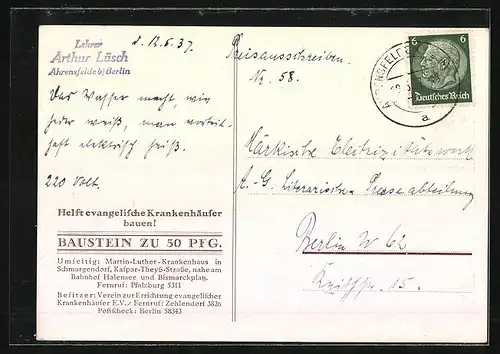 Lehrer
Arthur Lüsch
Ahrensfelde b/Berlin
d. 12. 5. 37.
Das Wasser macht, wie
jeder weiß, man vorteil-
haft elektrisch heiß.
220 Volt.
Helft evangelische Krankenhäuser
bauen!
BAUSTEIN ZU 50 PFG.
Umseitig: Martin-Luther-Krankenhaus in
Schmargendorf, Kaspar-Theyß-Straße, nahe am
Bahnhof Halensee und Bismarckplatz.
Fernruf: Pfalzburg 5311
Besitzer: Verein zur Errichtung evangelischer
Krankenhäuser E.V. / Fernruf: Zehlendorf 3826
Postscheck: Berlin 58343
Preisausschreiben.
Nr. 58.
6 6
Deutsches Reich
a
Märkische Elektrizitätswerk
A.-G. Literarische Presseabteilung
Berlin W 62
15.